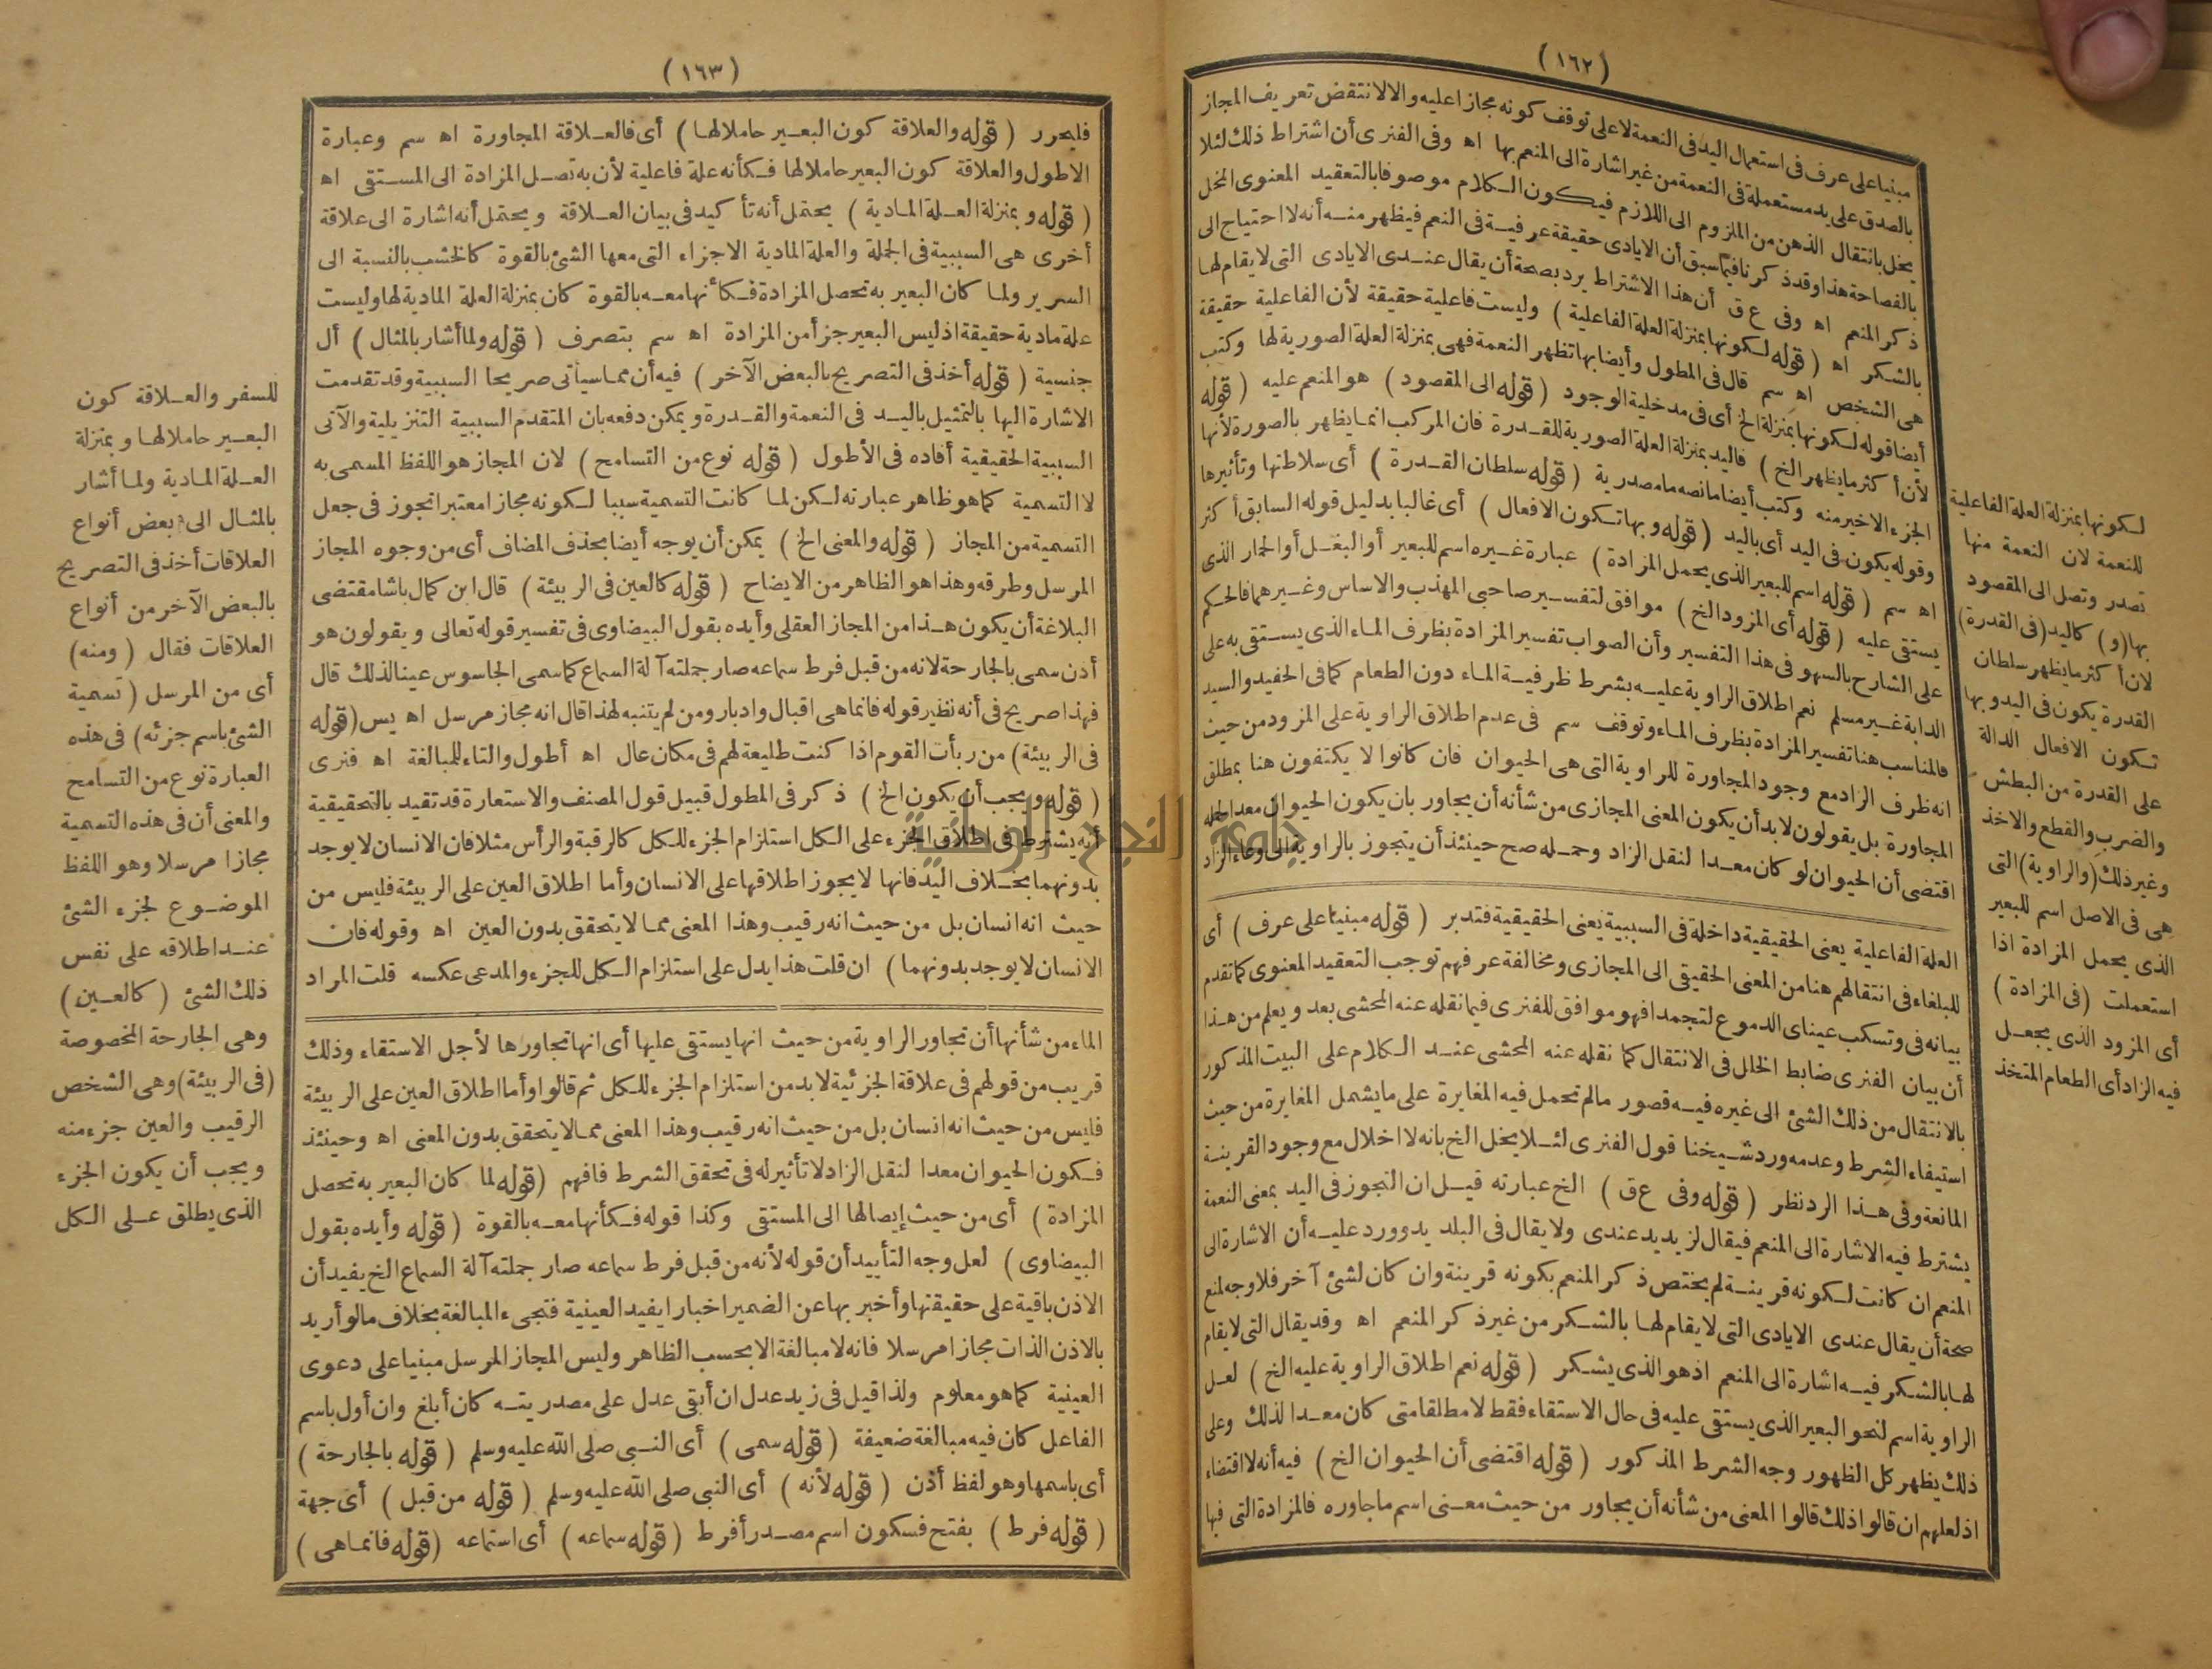 (١٦٢)
مبنيا على عرف في استعمال اليد في النعمة لا على توقف كونه مجازا عليه والا لانتقض تعريف المجاز
بالصدق على يد مستعملة في النعمة من غير اشارة الى المنعم بها اه وفي الفنرى أن اشتراط ذلك لئلا
يخل بانتقال الذهن من الملزوم الى اللازم فيكون الكلام موصوفا بالتعقيد المعنوى المخل
بالفصاحة هذا وقد ذكرنا فيما سبق أن الايادى حقيقة عرفية في النعم فيظهر منه أنه لا احتياج الى
ذكر المنعم اه وفى ع ق أن هذا الاشتراط يرد بصحة أن يقال عندى الايادى التى لا يقام لها
بالشكر اه (قوله لكونها بمنزلة العلة الفاعلية) وليست فاعلية حقيقة لأن الفاعلية حقيقة
هى الشخص اه سم قال في المطول وأيضا بها تظهر النعمة فهى بمنزلة العلة الصورية لها وكتب
أيضا قوله لكونها بمنزلة الخ أى في مدخلية الوجود (قوله الى المقصود) هو المنعم عليه (قوله
لأن أكثر ما يظهر الخ) فاليد بمنزلة العلة الصورية للقدرة فان المركب انما يظهر بالصورة لأنها
الجزء الاخير منه وكتب أيضا ما نصه ما مصدرية (قوله سلطان القدرة) أى سلاطتها وتأثيرها
وقوله يكون في اليد أى باليد (قوله وبها تكون الافعال) أى غالبا بدليل قوله السابق أكثر
اه سم (قوله اسم للبعير الذى يحمل المزادة) عبارة غيره اسم للبعير أو البغل أو الحمار الذى
يستقى عليه (قوله أى المزود الخ) موافق لتفسير صاحبى المهذب والاساس وغيرهما فالحكم
على الشارح بالسهو في هذا التفسير وأن الصواب تفسير المزادة بظرف الماء الذى يستقى به على
الدابة غير مسلم نعم اطلاق الراوية عليه بشرط ظرفية الماء دون الطعام كما في الحفيد والسيد
فالمناسب هنا تفسير المزادة بظرف الماء وتوقف سم في عدم اطلاق الراوية على المزود من حيث
انه ظرف الزاد مع وجود المجاورة للراوية التى هى الحيوان فان كانوا لا يكتفون هنا بمطلق
المجاورة بل يقولون لا بد أن يكون المعنى المجازى من شأنه أن يجاور بان يكون الحيوان معدا لحمله
اقتضى أن الحيوان لو كان معدا لنقل الزاد وحمله صح حينئذ أن يتجوز بالراوية الى وعاء الزاد
العلة الفاعلية يعنى الحقيقية داخلة في السببية يعنى الحقيقية فتدبر (قوله مبنيا على عرف) أى
للبلغاء في انتقالهم هنا من المعنى الحقيقى الى المجازى ومخالفة عرفهم توجب التعقيد المعنوى كما تقدم
بيانه في وتسكب عيناى الدموع لتجمدا فهو موافق للفنرى فيما نقله عنه المحشى بعد ويعلم من هذا
أن بيان الفنرى ضابط الخلل في الانتقال كما نقله عنه المحشى عند الكلام على البيت المذكور
بالانتقال من ذلك الشئ الى غيره فيه قصور مالم تحمل فيه المغايرة على ما يشمل المغايرة من حيث
استيفاء الشرط وعدمه ورد شيخنا قول الفنرى لئلا يخل الخ بانه لا اخلال مع وجود القرينة
المانعة وفى هذا الرد نظر (قوله وفى ع ق) الخ عبارته قيل ان التجوز في اليد بمعنى النعمة
يشترط فيه الاشارة الى المنعم فيقال لزيد يد عندى ولا يقال في البلد يد وورد عليه أن الاشارة الى
المنعم ان كانت لكونه قرينة لم يختص ذكر المنعم بكونه قرينة وان كان لشئ آخر فلا وجه لمنع
صحة أن يقال عندى الايادى التى لا يقام لها بالشكر من غير ذكر المنعم اه وقد يقال التى لا يقام
لها بالشكر فيه اشارة الى المنعم اذ هو الذى يشكر (قوله نعم اطلاق الراوية عليه الخ) لعل
الراوية اسم لنحو البعير الذى يستقى عليه في حال الاستقاء فقط لا مطلقا متى كان معدا لذلك وعلى
ذلك يظهر كل الظهور وجه الشرط المذكور (قوله اقتضى أن الحيوان الخ) فيه أنه لا اقتضاء
اذ لعلهم ان قالوا ذلك قالوا المعنى من شأنه أن يجاور من حيث معنى اسم ما جاوره فالمزادة التى فيها
لكونها بمنزلة العلة الفاعلية
للنعمة لان النعمة منها
تصدر وتصل الى المقصود
بها (و) كاليد (في القدرة)
لان أكثر ما يظهر سلطان
القدرة يكون في اليد وبها
تكون الافعال الدالة
على القدرة من البطش
والضرب والقطع والاخذ
وغير ذلك (والراوية) التى
هى في الاصل اسم للبعير
الذى يحمل المزادة اذا
استعملت (في المزادة)
أى المزود الذى يجعل
فيه الزاد أى الطعام المتخذ
(١٦٣)
فليحرر (قوله والعلاقة كون البعير حاملا لها) أى فالعلاقة المجاورة اه سم وعبارة
الاطول والعلاقة كون البعير حاملا لها فكأنه علة فاعلية لأن به تصل المزادة الى المستقى اه
(قوله وبمنزلة العلة المادية) يحتمل أنه تأكيد في بيان العلاقة ويحتمل أنه اشارة الى علاقة
أخرى هى السببية في الجملة والعلة المادية الاجزاء التى معها الشئ بالقوة كالخشب بالنسبة الى
السرير ولما كان البعير به تحصل المزادة فكأنها معه بالقوة كان بمنزلة العلة المادية لها وليست
علة مادية حقيقة اذ ليس البعير جزأ من المزادة اه سم بتصرف (قوله ولما أشار بالمثال) أل
جنسية (قوله أخذ في التصريح بالبعض الآخر) فيه أن مما سيأتى صريحا السببية وقد تقدمت
الاشارة اليها بالتمثيل باليد في النعمة والقدرة ويمكن دفعه بان المتقدم السببية التنزيلية والآتى
السببية الحقيقية أفاده في الأطول (قوله نوع من التسامح) لان المجاز هو اللفظ المسمى به
لا التسمية كما هو ظاهر عبارته لكن لما كانت التسمية سببا لكونه مجازا معتبرا تجوز في جعل
التسمية من المجاز (قوله والمعنى الخ) يمكن أن يوجه أيضا بحذف المضاف أى من وجوه المجاز
المرسل وطرقه وهذا هو الظاهر من الايضاح (قوله كالعين في الربيئة) قال ابن كمال باشا مقتضى
البلاغة أن يكون هذا من المجاز العقلى وأيده بقول البيضاوى في تفسير قوله تعالى ويقولون هو
أذن سمى بالجارحة لانه من قبل فرط سماعه صار جملته آلة السماع كما سمى الجاسوس عينا لذلك قال
فهذا صريح في أنه نظير قوله فانما هى اقبال وادبار ومن لم يتنبه لهذا قال انه مجاز مرسل اه يس (قوله
في الربيئة) من ربأت القوم اذا كنت طليعة لهم في مكان عال اه أطول والتاء للمبالغة اه فنرى
(قوله ويجب أن يكون الخ) ذكر في المطول قبيل قول المصنف والاستعارة قد تقيد بالتحقيقية
أنه يشترط في اطلاق الجزء على الكل استلزام الجزء للكل كالرقبة والرأس مثلا فان الانسان لا يوجد
بدونهما بخلاف اليد فانها لا يجوز اطلاقها على الانسان وأما اطلاق العين على الربيئة فليس من
حيث انه انسان بل من حيث انه رقيب وهذا المعنى مما لا يتحقق بدون العين اه وقوله فان
الانسان لا يوجد بدونهما) ان قلت هذا يدل على استلزام الكل للجزء والمدعى عكسه قلت المراد
الماء من شأنها أن تجاور الراوية من حيث انها يستقى عليها أى انها تجاورها لأجل الاستقاء وذلك
قريب من قولهم في علاقة الجزئية لا بد من استلزام الجزء للكل ثم قالوا وأما اطلاق العين على الربيئة
فليس من حيث انه انسان بل من حيث انه رقيب وهذا المعنى مما لا يتحقق بدون المعنى اه وحينئذ
فكون الحيوان معدا لنقل الزاد لا تأثير له في تحقق الشرط فافهم (قوله لما كان البعير به تحصل
المزادة) أى من حيث إيصالها الى المستقى وكذا قوله فكأنها معه بالقوة (قوله وأيده بقول
البيضاوى) لعل وجه التأييد أن قوله لأنه من قبل فرط سماعه صار جملته آلة السماع الخ يفيد أن
الاذن باقية على حقيقتها وأخبر بها عن الضمير اخبارا يفيد العينية فتجىء المبالغة بخلاف ما لو أريد
بالاذن الذات مجازا مرسلا فانه لا مبالغة الا بحسب الظاهر وليس المجاز المرسل مبنيا على دعوى
العينية كما هو معلوم ولذا قيل في زيد عدل ان أبقى عدل على مصدريته كان أبلغ وان أول باسم
الفاعل كان فيه مبالغة ضعيفة (قوله سمى) أى النبى صلى الله عليه وسلم (قوله بالجارحة)
أى باسمها وهو لفظ أذن (قوله لأنه) أى النبى صلى الله عليه وسلم (قوله من قبل) أى جهة
(قوله فرط) بفتح فسكون اسم مصدر أفرط (قوله سماعه) أى استماعه (قوله فانما هى)
للسفر والعلاقة كون
البعير حاملا لها وبمنزلة
العلة المادية ولما أشار
بالمثال الى بعض أنواع
العلاقات أخذ في التصريح
بالبعض الآخر من أنواع
العلاقات فقال (ومنه)
أى من المرسل (تسمية
الشئ باسم جزئه) في هذه
العبارة نوع من التسامح
والمعنى أن في هذه التسمية
مجازا مرسلا وهو اللفظ
الموضوع لجزء الشئ
عند اطلاقه على نفس
ذلك الشئ (كالعين)
وهى الجارحة المخصوصة
(في الربيئة) وهى الشخص
الرقيب والعين جزء منه
ويجب أن يكون الجزء
الذى يطلق على الكل
جامعة النجاح الوطنية